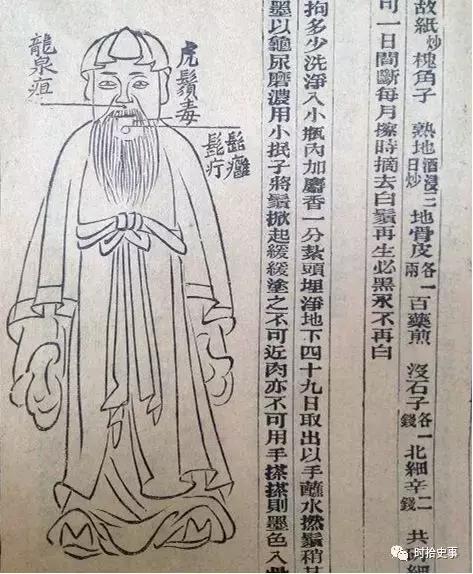 故紙炒 槐角子 熟地酒浸三日炒 地骨皮各一兩 百藥煎 沒石子各一錢 北細辛二錢 共
可一日間斷每月擦時摘去白鬚再生必黑永不再白
拘多少洗淨入小瓶內加麝香一分紮頭埋淨地下四十九日取出以手蘸水撚鬚稍
墨以龜尿磨濃用小抿子將鬚掀起緩緩塗之不可近肉亦不可用手搽搽則墨色入
虎鬚毒
髭癰
髭疔
龍泉疽
时拾史事